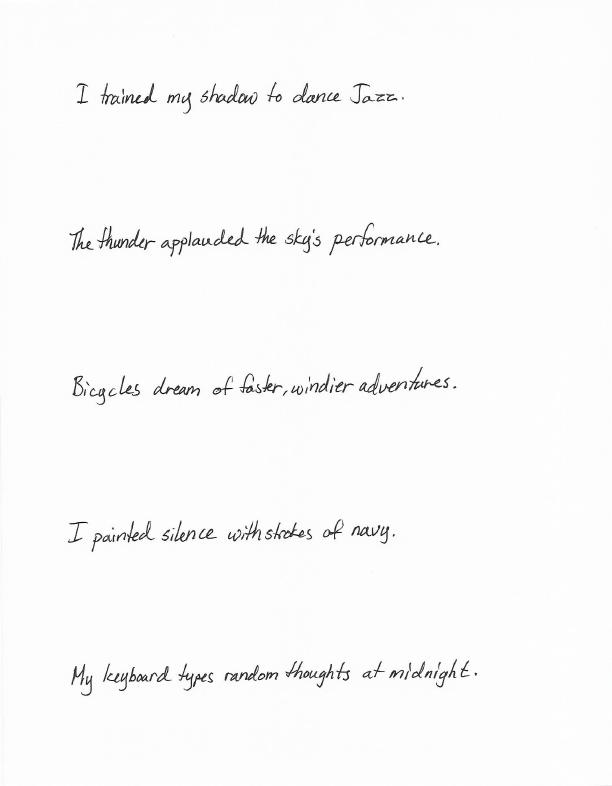 I trained my shadow to dance Jazz.
The thunder applauded the sky's performance.
Bicycles dream of faster, windier adventures.
I painted silence with strokes of navy.
My keyboard types random thoughts at midnight.